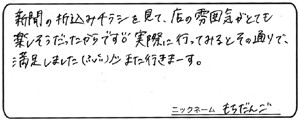 新聞の折込みチラシを見て、店の雰囲気がとても
楽しそうだったからです。実際に行ってみるとその通りで、
満足しました(^^)また行きまーす。
ニックネーム もちだんご